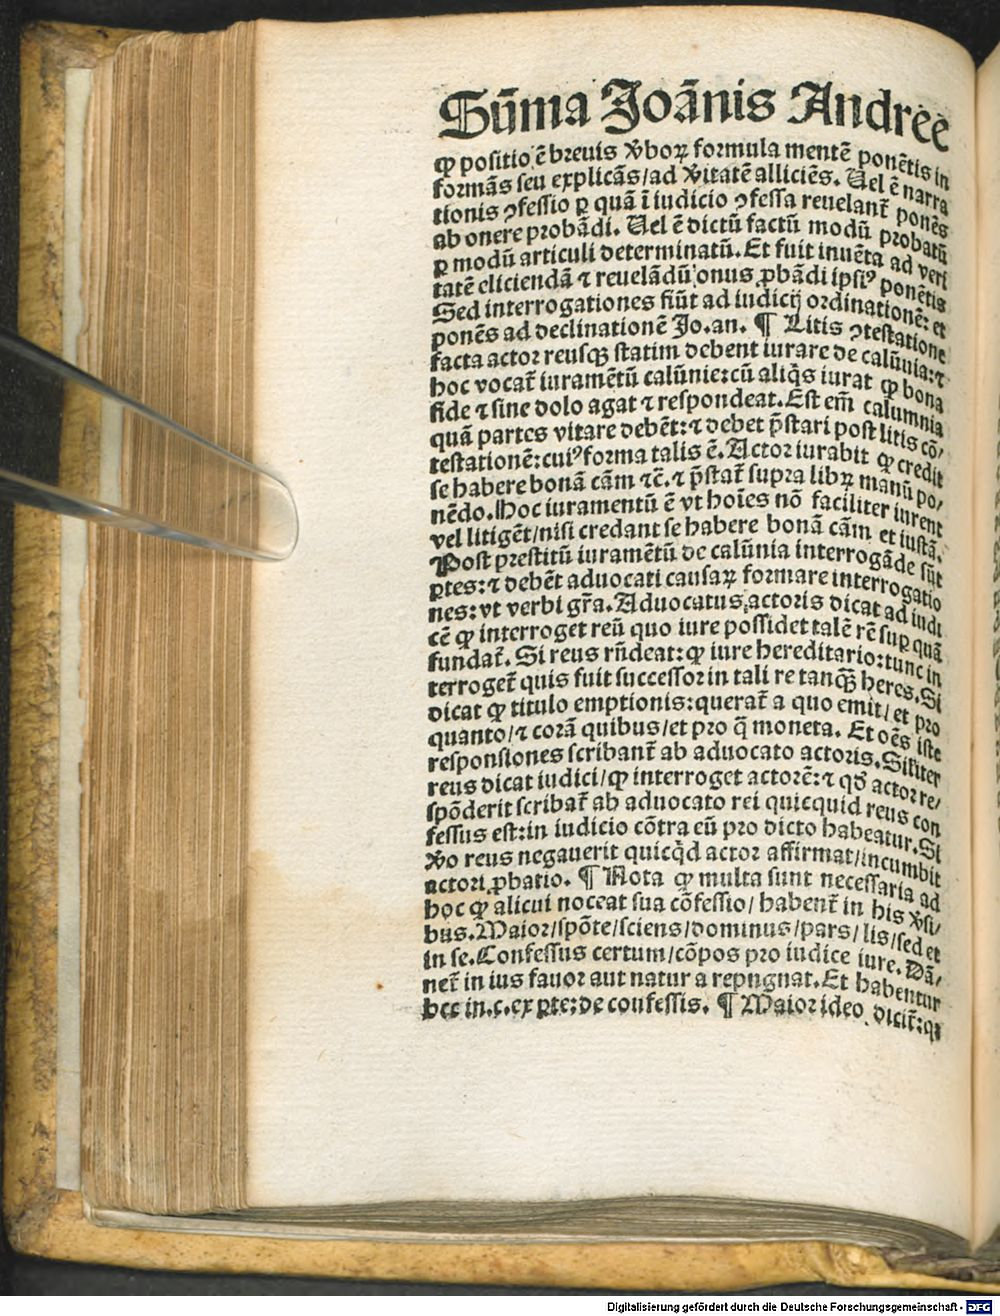 Sūma Joānis Andree
ꝙ positio ē breuis v̄boꝝ formula mentē ponētis in
formās seu explicās/ad v̄itatē alliciēs. Uel ē narra
tionis ꝯfessio ꝑ quā ī iudicio ꝯfessa reuelant̄ ponēs
ab onere probādi. Uel ē dictū factū modū probatū
ꝑ modū articuli determinatū. Et fuit inuēta ad veri
tatē eliciendā ⁊ reuelādū onus ꝓbādi ipsiꝰ ponētis
Sed interrogationes fiūt ad iudicij ordinationē: et
ponēs ad declinationē Jo.an. ¶ Litis ꝯtestatione
facta actor reusqꝫ statim debent iurare de calūnia:⁊
hoc vocat̄ iuramētū calūnie:cū aliq̄s iurat ꝙ bona
fide ⁊ sine dolo agat ⁊ respondeat. Est em̄ calumnia
quā partes vitare debēt:⁊ debet p̄stari post litis cō/
testationē:cuiꝰ forma talis ē. Actor iurabit ꝙ credit
se habere bonā cām ⁊c̄. ⁊ p̄stat̄ supra libꝝ manū po/
nēdo. Hoc iuramentū ē vt hoīes nō faciliter iurent
vel litigēt/nisi credant se habere bonā cām et iustā.
Post prestitū iuramētū de calūnia interrogāde sūt
ꝑtes:⁊ debēt aduocati causaꝝ formare interrogatio
nes:vt verbi gr̄a. Aduocatus actoris dicat ad iudi
cē ꝙ interroget reū quo iure possidet talē rē suꝑ quā
fundat̄. Si reus rn̄deat:ꝙ iure hereditario:tunc in
terroget̄ quis fuit successor in tali re tanqꝫ̄ heres. Si
dicat ꝙ titulo emptionis:querat̄ a quo emit/ et pro
quanto/⁊ corā quibus/et pro q̄ moneta. Et oēs iste
responsiones scribant̄ ab aduocato actoris. Siliter
reus dicat iudici/ꝙ interroget actorē:⁊ qd̄ actor re/
spōderit scribat̄ ab aduocato rei quicquid reus con
fessus est:in iudicio cōtra eū pro dicto habeatur. Si
v̄o reus negauerit quicq̄d actor affirmat/incumbit
actori ꝓbatio. ¶ Nota ꝙ multa sunt necessaria ad
hoc ꝙ alicui noceat sua cōfessio/ habent̄ in his v̄si/
bus. Maior/spōte/sciens/dominus/pars/ lis/sed et
in se. Confessus certum/cōpos pro iudice iure. Dā/
net̄ in ius fauor aut natur a repugnat. Et habentur
hec in.c.ex ꝑte:de confessis. ¶ Maior ideo dicit̄:qꝛ
Digitalisierung gefördert durch die Deutsche Forschungsgemeinschaft - DFG